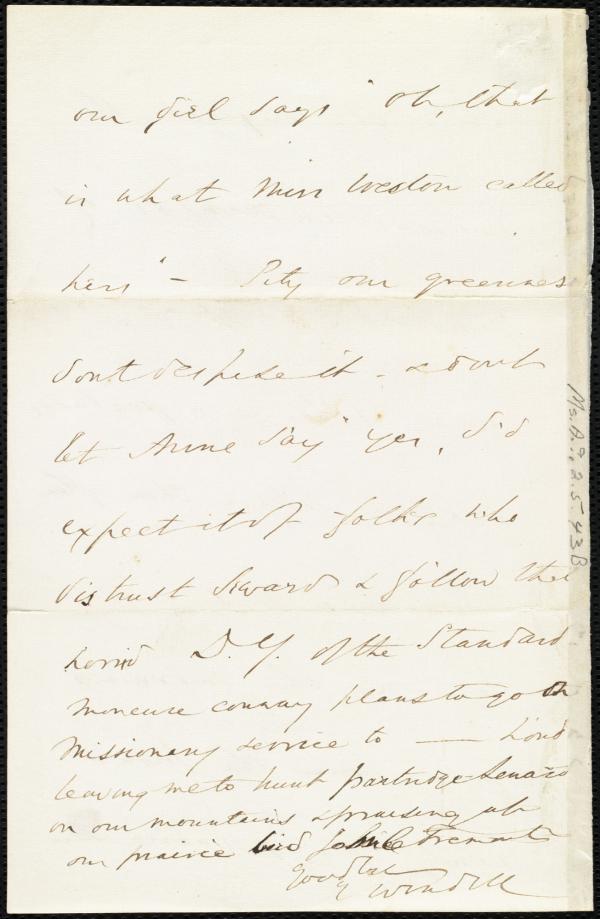 our girl says "Oh, that
is what Miss Weston called
hers" - Pity our greenness
don't despise it - & don't
let Anne say "yes, I'd
expect it of folks who
distrust Seward & follow that
horrid D.Y. of the Standard
Moncure Conway plans to go on
missionary service to —— Lond
leaving me to hunt partridge
on our mountains & praising up
our prairie bird John C Fremont
Goodbye
Wendell
Ms. A. 9. 2. 5. 43B